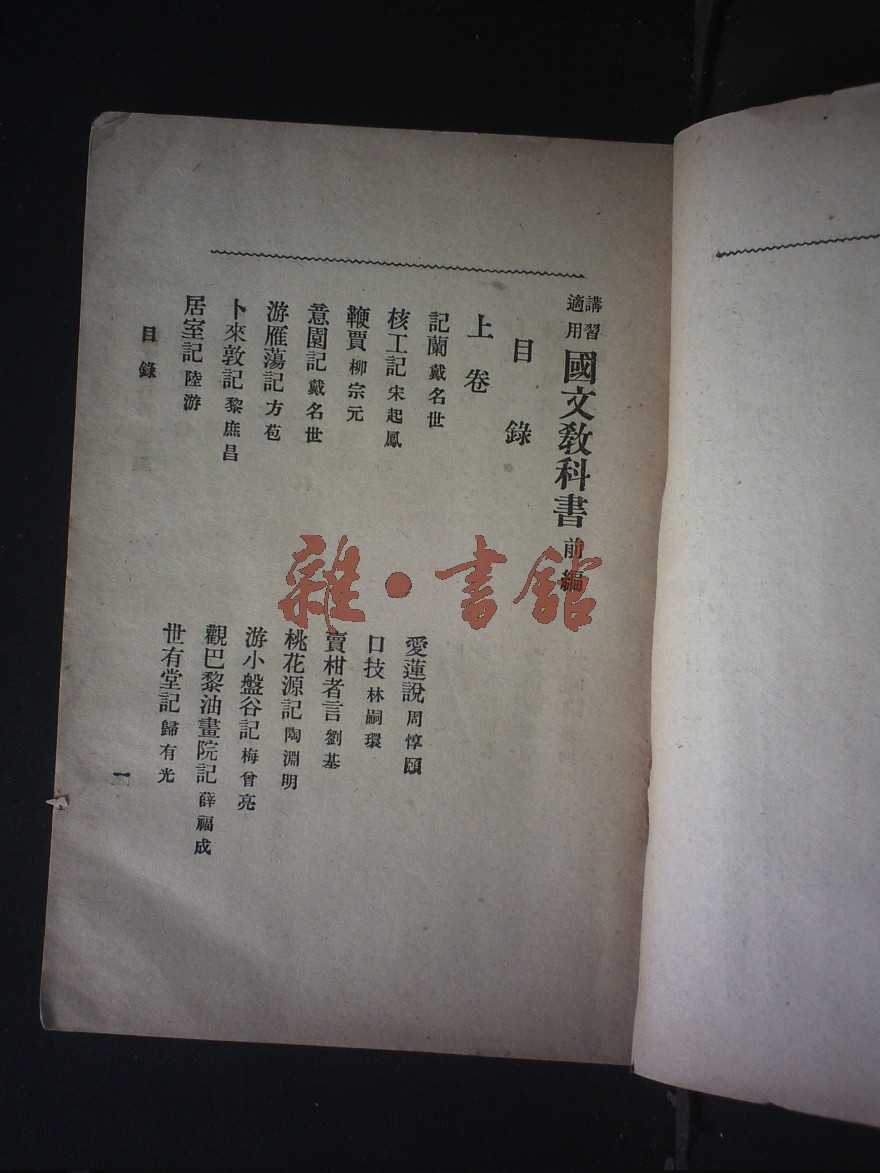 講習適用 國文教科書 前編
目錄
上卷
記蘭 戴名世
愛蓮說 周惇頤
核工記 宋起鳳
口技 林嗣環
鞭賈 柳宗元
賣柑者言 劉基
意園記 戴名世
桃花源記 陶淵明
游雁蕩記 方苞
游小盤谷記 梅曾亮
卜來敦記 黎庶昌
觀巴黎油畫院記 薛福成
居室記 陸游
世有堂記 歸有光
目錄
一
雜·書館